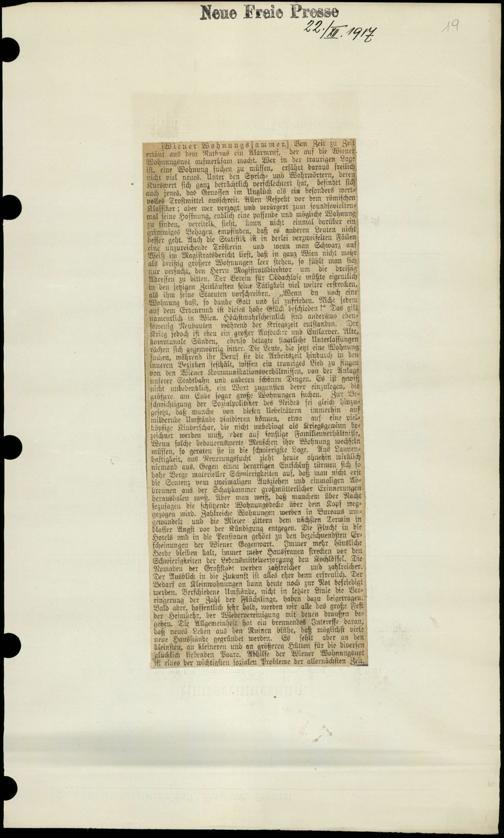 Neue Freie Presse
22./XI. 1917
19
[Wiener Wohnungsjammer.] Von Zeit zu Zeit
ertönt aus dem Rathaus ein Alarmruf, der auf die Wiener
Wohnungsnot aufmerksam macht. Wer in der traurigen Lage
ist, eine Wohnung suchen zu müssen, erfährt daraus freilich
nicht viel neues. Unter den Sprich- und Wahrwörtern, deren
Kurswert sich ganz beträchtlich verschlechtert hat, befindet sich
auch jenes, das Genossen im Unglück als ein besonders wert-
volles Trostmittel ausschreit. Allen Respekt vor dem römischen
Klassiker; aber wer verzagt und verärgert zum soundsovielten-
mal seine Hoffnung, endlich eine passende und mögliche Wohnung
zu finden, vereitelt, sieht, kann nicht einmal darüber ein
grimmiges Behagen empfinden, daß es anderen Leuten nicht
besser geht. Auch die Statistik ist in derlei verzweifelten Fällen
eine unzureichende Trösterin und wenn man Schwarz auf
Weiß im Magistratsbericht liest, daß in ganz Wien nicht mehr
als dreißig größere Wohnungen leer stehen, so fühlt man sich
nur versucht, den Herrn Magistratsdirektor um die dreißig
Adressen zu bitten. Der Verein für Obdachlose müßte eigentlich
in den jetzigen Zeitläuften seine Tätigkeit viel weiter erstrecken,
als ihm seine Statuten vorschreiben. „Wenn du noch eine
Wohnung hast, so danke Gott und sei zufrieden. Nicht jedem
auf dem Erdenrund ist dieses hohe Glück beschieden!“ Das gilt
namentlich in Wien. Höchstwahrscheinlich sind anderswo eben-
sowenig Neubauten während der Kriegszeit entstanden. Der
Krieg jedoch ist eben ein großer Aufdecker und Entlarver. Alte,
kommunale Sünden, ebenso betagte staatliche Unterlassungen
rächen sich gegenwärtig bitter. Die Leute, die jetzt eine Wohnung
suchen, während ihr Beruf sie die Arbeitszeit hindurch in den
inneren Bezirken festhält, wissen ein trauriges Lied zu singen
von den Wiener Kommunikationsverhältnissen, von der Anlage
unserer Stadtbahn und anderen schönen Dingen. Es ist gewiß
nicht unbedenklich, ein Wort zugunsten derer einzulegen, die
größere, am Ende sogar große Wohnungen suchen. Zur Be-
schwichtigung der Sozialpolitiker des Neides sei gleich hinzu-
gesetzt, daß manche von diesen Uebeltätern immerhin auf
mildernde Umstände plaidieren können, etwa auf eine viel-
köpfige Kinderschar, die nicht unbedingt als Kriegsgewinn be-
zeichnet werden muß, oder auf sonstige Familienverhältnisse.
Wenn solche bedauernswerte Menschen ihre Wohnung wechseln
müssen, so geraten sie in die schwierigste Lage. Aus Launen-
haftigkeit, aus Neuerungssucht zieht heute ohnehin wirklich
niemand aus. Gegen einen derartigen Entschluß türmen sich so
hohe Berge materieller Schwierigkeiten auf, daß man nicht erst
die Sentenz vom zweimaligen Ausziehen und einmaligen Ab-
brennen aus der Schatzkammer großmütterlicher Erinnerungen
heraufholen muß. Aber man weiß, daß manchem über Nacht
sozusagen die schützende Wohnungsdecke über dem Kopf weg-
gezogen wird. Zahlreiche Wohnungen werden in Bureaus um-
gewandelt und die Mieter zittern dem nächsten Termin in
blasser Angst vor der Kündigung entgegen. Die Flucht in die
Hotels und in die Pensionen gehört zu den bezeichnendsten Er-
scheinungen der Wiener Gegenwart. Immer mehr häusliche
Herde bleiben kalt, immer mehr Hausfrauen strecken vor den
Schwierigkeiten der Lebensmittelversorgung den Kochlöffel. Die
Nomaden der Großstadt werden zahlreicher und zahlreicher.
Der Ausblick in die Zukunft ist alles eher denn erfreulich. Der
Bedarf an Kleinwohnungen kann heute noch zur Not befriedigt
werden. Verschiedene Umstände, nicht in letzter Linie die Ver-
ringerung der Zahl der Flüchtlinge, haben dazu beigetragen.
Bald aber, hoffentlich sehr bald, werden wir alle das große Fest
der Heimkehr, der Wiedervereinigung mit denen draußen be-
gehen. Die Allgemeinheit hat ein brennendes Interesse daran,
daß neues Leben aus den Ruinen blühe, daß möglichst viele
neue Hausstände gegründet werden. Es fehlt aber an den
kleinsten, an kleineren und an größeren Hütten für die diversen
glücklich liebenden Paare. Abhilfe der Wiener Wohnungsnot
ist eines der wichtigsten sozialen Probleme der allernächsten Zeit.